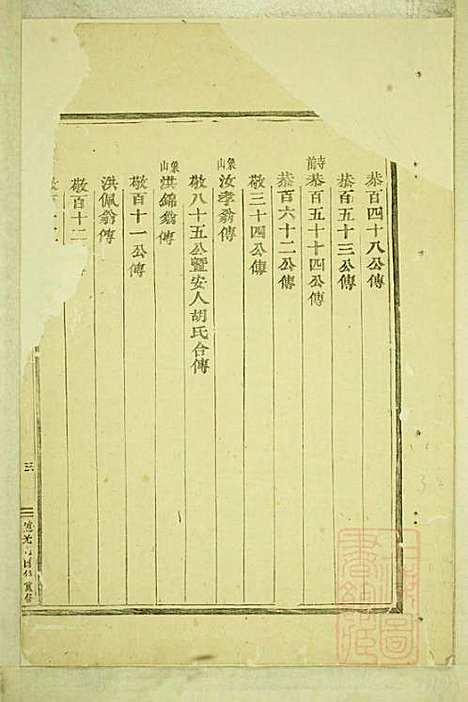 恭百四十八公傳
恭百五十三公傳
寺前恭百五十四公傳
恭百六十二公傳
敬三十四公傳
象山汝孝翁傳
敬八十五公暨安人胡氏合傳
象山洪錦翁傳
敬百十一公傳
洪佩翁傳
敬百十二
三